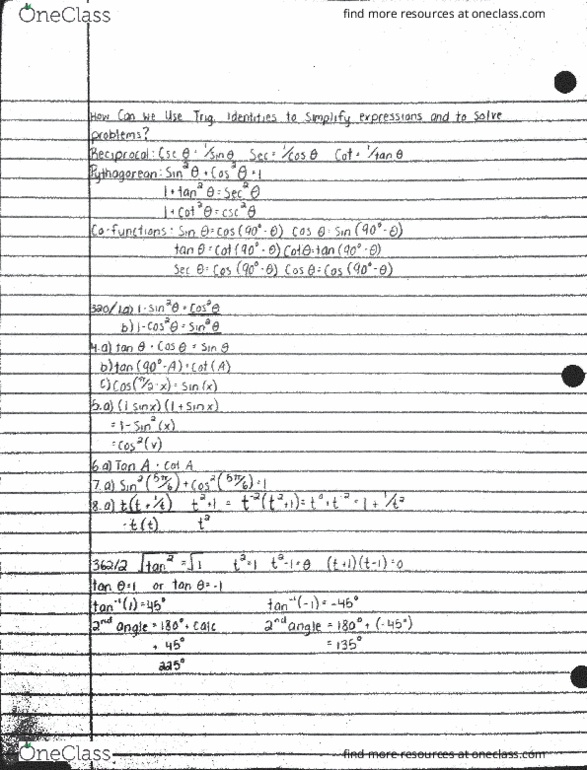 OneClass
find more resources at oneclass.com
How Can we Use Trig Identities to Simplify expressions and to Solve
problems?
Reciprocal: Csc θ = 1/sin θ Sec = 1/cos θ Cot = 1/tan θ
Pythagorean: Sin²θ + Cos²θ = 1
1 + tan²θ = Sec²θ
1 + Cot²θ = csc²θ
Co-functions: Sin θ = Cos (90° - θ) Cos θ = Sin (90° - θ)
tan θ = Cot (90° - θ) Cot θ = tan (90° - θ)
Sec θ = Cos (90° - θ) Cos θ = Cos (90° - θ)
320/1a) 1 - Sin²θ = Cos²θ
b) 1 - Cos²θ = Sin²θ
4.a) tan θ · Cos θ = Sin θ
b) tan (90° - A) = Cot (A)
c) Cos (π/2 - x) = Sin (x)
5.a) (1 sinx) (1 + Sinx)
= 1 - Sin² (x)
= Cos² (v)
6.a) Tan A · Cot A
7.a) Sin² (5π/6) + Cos² (5π/6) = 1
8.a) t(t + 1/t) t² + 1 = t⁻² (t² + 1) = t⁰ + t⁻² = 1 + 1/t²
· t (t) t²
362/2 √tan² = √1 t² = 1 t² - 1 = θ (t + 1) (t - 1) = 0
tan θ = 1 or tan θ = -1
tan⁻¹ (1) = 45° tan⁻¹ (-1) = -45°
2nd angle = 180° + Calc 2nd angle = 180° + (-45°)
+ 45° = 135°
225°
OneClass
find more resources at oneclass.com